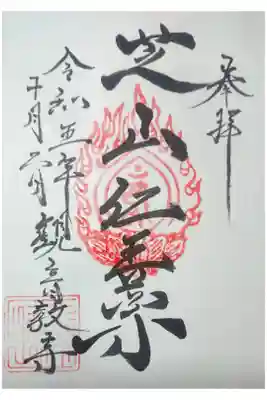 奉拝
芝山仁王尊
令和五年
十月六日
観音教寺